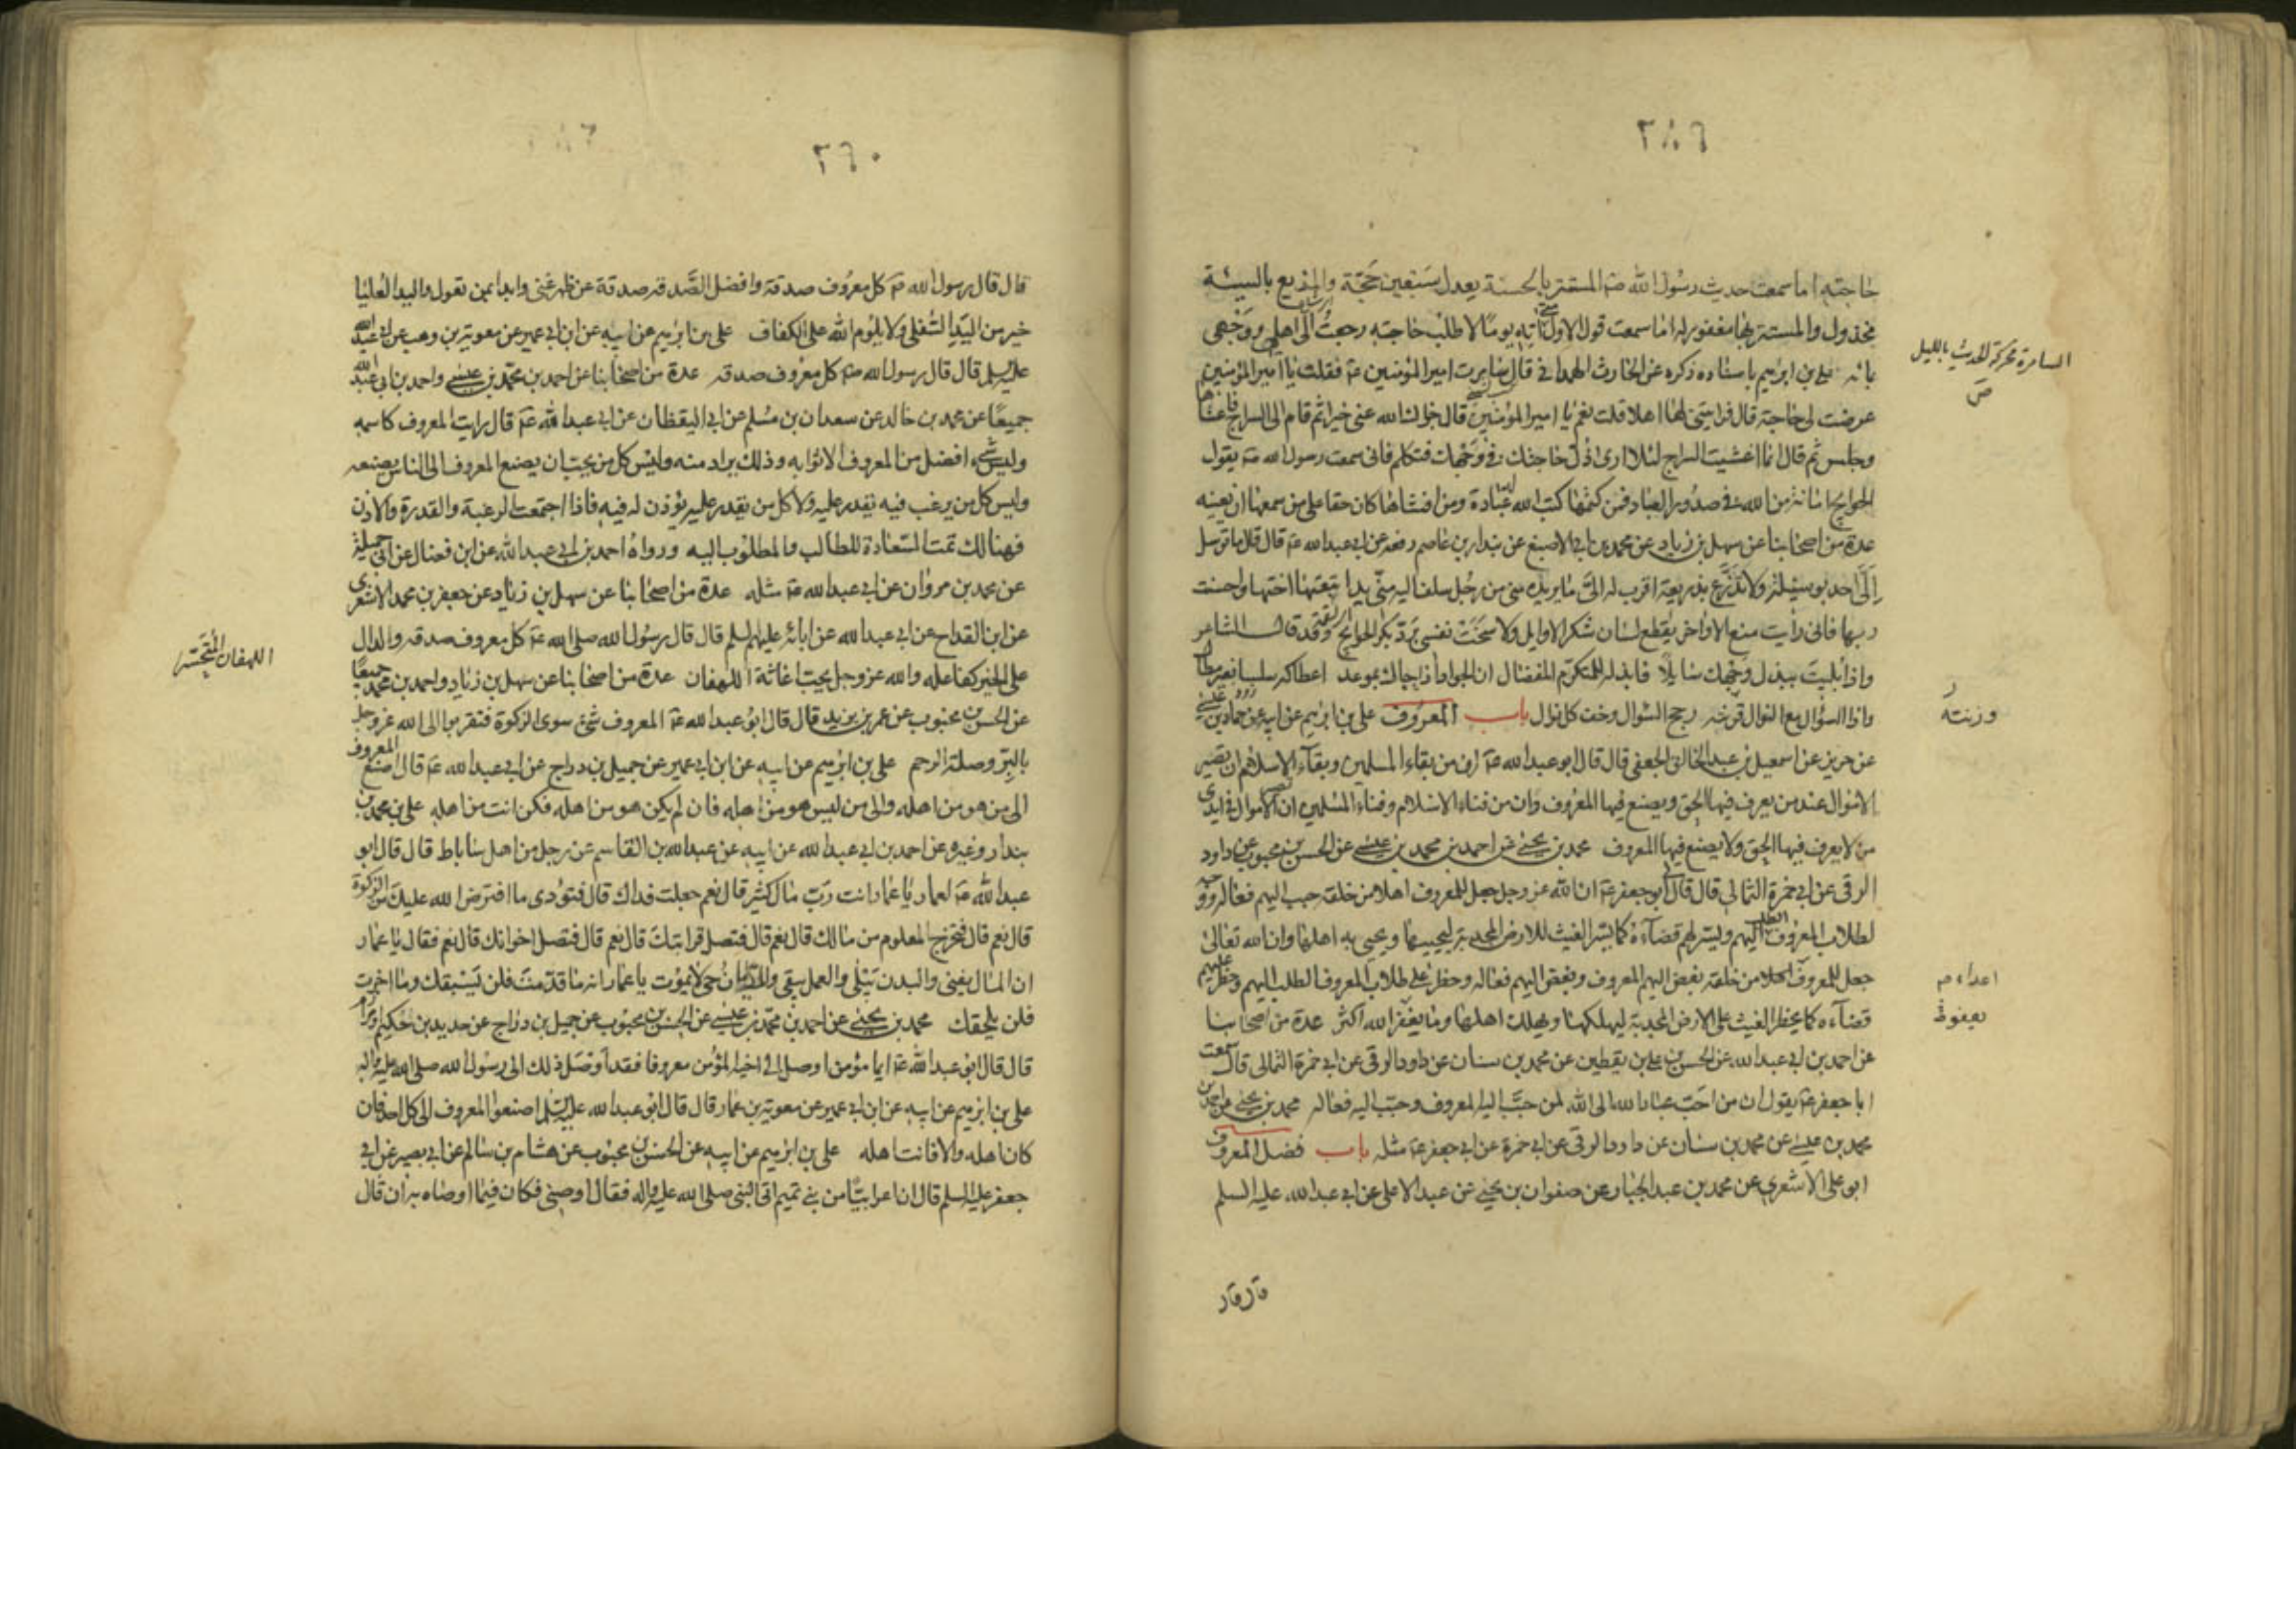 ٢٨٩
حاجته اما سمعت حديث رسول الله صَ المستتر بالحسنة يعدل سبعين حجّة والمذيع بالسيئة
مخذول والمستتر بها مغفور له اما سمعت قول الاول متى اته يومًا لاطلب حاجته رجعتُ الى اهلي ووجهي
بمائه علي بن ابرهيم باسناده ذكره عن الحارث الهمداني قال سامرت امير المؤمنين عَ فقلت يا امير المؤمنين
عرضت لي حاجة قال فرايتني لها اهلا قلت نعم يا امير المؤمنين قال جزاك الله عني خيرا ثم قام الى السراج فاغشاها
وجلس ثم قال انما اغشيت السراج لئلا ارى ذل حاجتك في وجهك فتكلم فاني سمعت رسول الله صَ يقول
الحوايج امانة من الله في صدور العباد فمن كتمها كتب الله له عبادة ومن افشاها كان حقا على من سمعها ان يعينه
عدة من اصحابنا عن سهل بن زياد عن محمد بن ابي الاصبغ عن بندار بن عاصم رفعه عن ابي عبد الله عَ قال قال ما توسل
اِلَىَّ احد بوسيلة ولا تذرّع بذريعة اقرب له الىَّ ما يريده مني من رجل سلف اليه منّي يد اتبعتها اختها واحسنت
ربها فاني رأيت منع الاواخر يقطع لسان شكر الاوايل ولا سخت نفسي بردّ بكر الحوايج وقد قال الشاعر
واذا بليت ببذل وجهك سايلا فابذله للمتكرم المفضال ان الجواد اذا حباك بموعد اعطاكه سلسا بغير مطال
واذا السؤال مع النوال قرنته رجح السؤال وخف كل نوال باب المعروف علي بن ابرهيم عن ابيه عن حماد بن عيسى
عن حريز عن اسمعيل بن عبد الخالق الجعفي قال قال ابو عبد الله عَ ان من بقاء المسلمين وبقاء الاسلام ان تصير
الاموال عند من يعرف فيها الحق ويصنع فيها المعروف وان من فناء الاسلام وفناء المسلمين ان تصير الاموال في ايدي
من لا يعرف فيها الحق ولا يصنع فيها المعروف محمد بن يحيى عن احمد بن محمد بن عيسى عن الحسن بن محبوب عن داود
الرقي عن ابي حمزة الثمالي قال قال ابو جعفر عَ ان الله عز وجل جعل للمعروف اهلا من خلقه حبب اليهم فعاله ووجه
لطلاب المعروف الطلب اليهم ويسر لهم قضاءه كما يسر الغيث للارض المجدبة ليحييها ويحيي به اهلها وان الله تعالى
جعل للمعروف اعداء من خلقه بغض اليهم المعروف وبغض اليهم فعاله وحظر على طلاب المعروف الطلب اليهم وحظر عليهم
قضاءه كما يحظر الغيث على الارض المجدبة ليهلكها ويهلك اهلها وما يغفر الله اكثر عدة من اصحابنا
عن احمد بن ابي عبد الله عن الحسن بن علي بن يقطين عن محمد بن سنان عن داود الرقي عن ابي حمزة الثمالي قال سمعت
ابا جعفر عَ يقول ان من احبّ عباد الله الى الله لمن حبّب اليه المعروف وحبّب اليه فعاله محمد بن يحيى عن احمد بن
محمد بن عيسى عن محمد بن سنان عن داود الرقي عن ابي حمزة عن ابي جعفر عَ مثله باب فضل المعروف
ابو علي الاشعري عن محمد بن عبد الجبار عن صفوان بن يحيى عن عبد الاعلى عن ابي عبد الله عليه السلم
قال قال
السامرة محركة الحديث بالليل
ص
وزنته
اعداء م
يعفو
٢٦٠
قال قال رسول الله صَ كل معروف صدقة وافضل الصَّدقه صدقة عن ظهر غنى وابدا بمن تعول واليد العُليا
خير من اليَد السُّفلى ولا يلوم الله على الكفاف علي بن ابرهيم عن ابيه عن ابن ابي عمير عن معوية بن وهب عن ابي عبد الله
عليه السلم قال قال رسول الله صَ كل معروف صدقه عدة من اصحابنا عن احمد بن محمّد بن عيسى واحمد بن ابي عبد الله
جميعًا عن محمد بن خالد عن سعدان بن مُسلم عن ابي اليقظان عن ابي عبد الله عَ قال رايت المعروف كاسمه
وليس شيء افضل من المعروف الا ثوابه وذلك يراد منه وليس كل من يحب ان يصنع المعروف الى الناس يصنعه
وليس كل من يرغب فيه يقدر عليه ولا كل من يقدر عليه يؤذن له فيه فاذا اجتمعت الرغبة والقدرة والاذن
فهنالك تمت السّعادة للطالب والمطلوب اليه ورواه احمد بن ابي عبد الله عن ابن فضال عن ابي جميلة
عن محمد بن مروان عن ابي عبد الله عَ مثله عدة من اصحابنا عن سهل بن زياد عن جعفر بن محمد الاشعري
عن ابن القداح عن ابي عبد الله عن ابائه عليهم السلم قال قال رسول الله صلى الله عَ كل معروف صدقه والدال
على الخير كفاعله والله عز وجل يحب اغاثة اللهفان عدة من اصحابنا عن سهل بن زياد واحمد بن محمد جميعًا
عن الحسن بن محبوب عن عمر بن يزيد قال قال ابو عبد الله عَ المعروف شيء سوى الزكوة فتقربوا الى الله عز وجل
بالبِرّ وصلة الرحم علي بن ابرهيم عن ابيه عن ابن ابي عمير عن جميل بن دراج عن ابي عبد الله عَ قال اصنع المعروف
الى من هو من اهله والى من ليس هو من اهله فان لم يكن هو من اهله فكن انت من اهله علي بن محمد بن
بندار وغيره عن احمد بن ابي عبد الله عن ابيه عن عبد الله بن القاسم عن رجل من اهل ساباط قال قال ابو
عبد الله عَ لعمار يا عمار انت ربّ مال كثير قال نعم جعلت فداك قال فتؤدى ما افترض الله عليك من الزكوة
قال نعم قال فتخرج المعلوم من مالك قال نعم قال فتصل قرابتك قال نعم قال فتصل اخوانك قال نعم فقال يا عمار
ان المال يفنى والبدن يبلى والعمل يبقى والديان حى لا يموت يا عمار انه ما قدّمت فلن يسبقك وما اخرت
فلن يلحقك محمد بن يحيى عن احمد بن محمّد بن عيسى عن الحسن بن محبوب عن جميل بن دراج عن حديد بن حكيم او مرازم
قال قال ابو عبد الله عَ ايما مؤمن اوصل الى اخيه المؤمن معروفا فقد اوصل ذلك الى رسول الله صلى الله عليه واله
علي بن ابرهيم عن ابيه عن ابن ابي عمير عن معوية بن عمار قال قال ابو عبد الله عليه السلم اصنعوا المعروف الى كل احد فان
كان اهله والا فانت اهله علي بن ابرهيم عن ابيه عن الحسن بن محبوب عن هشام بن سالم عن ابي بصير عن ابي
جعفر عليه السلم قال ان اعرابيًّا من بني تميم اتى النبي صلى الله عليه واله فقال اوصني فكان فيما اوصاه به ان قال
اللهفان المتحسّر